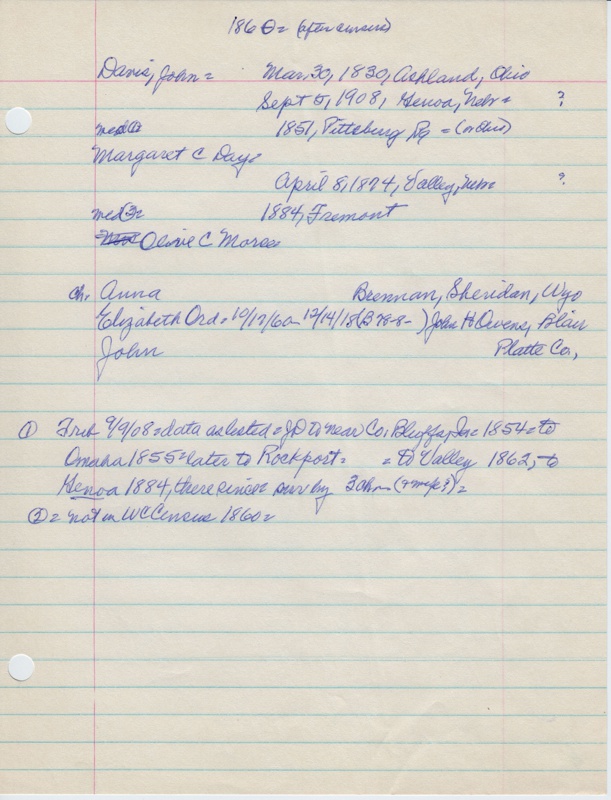 1860= (after census)
Davis, John= Mar. 30, 1830, Ashland, Ohio
Sept 5, 1908, Genoa, Nebr= ?
med① 1851, Pittsburg Pa = (or Ohio)
Margaret C Day=
April 8, 1874, Valley, Nebr ?
med②= 1884, Fremont
Olive C
ch. Anna Brennan, Sheridan, Wyo
Elizabeth Ord= 10/17/60- 12/14/18 (B 78-8- ) John H Owens, Blair
John Platte Co,
① Trib 9/9/08=data as listed=JD to near Co, Bluffs, Ia= 1854=to
Omaha 1855=later to Rockport= =to Valley 1862, to
Genoa 1884, there since= surv by 3 ch=
②= not in WC Census 1860=